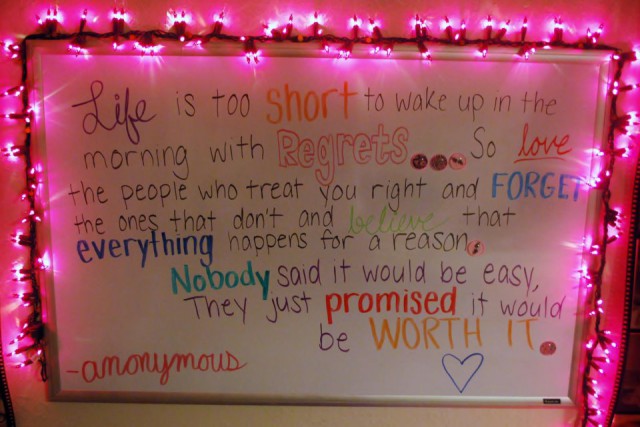 Life is too short to wake up in the
morning with Regrets... So love
the people who treat you right and FORGET
the ones that don't and believe that
everything happens for a reason.
Nobody said it would be easy,
They just promised it would
be WORTH IT.
-anonymous